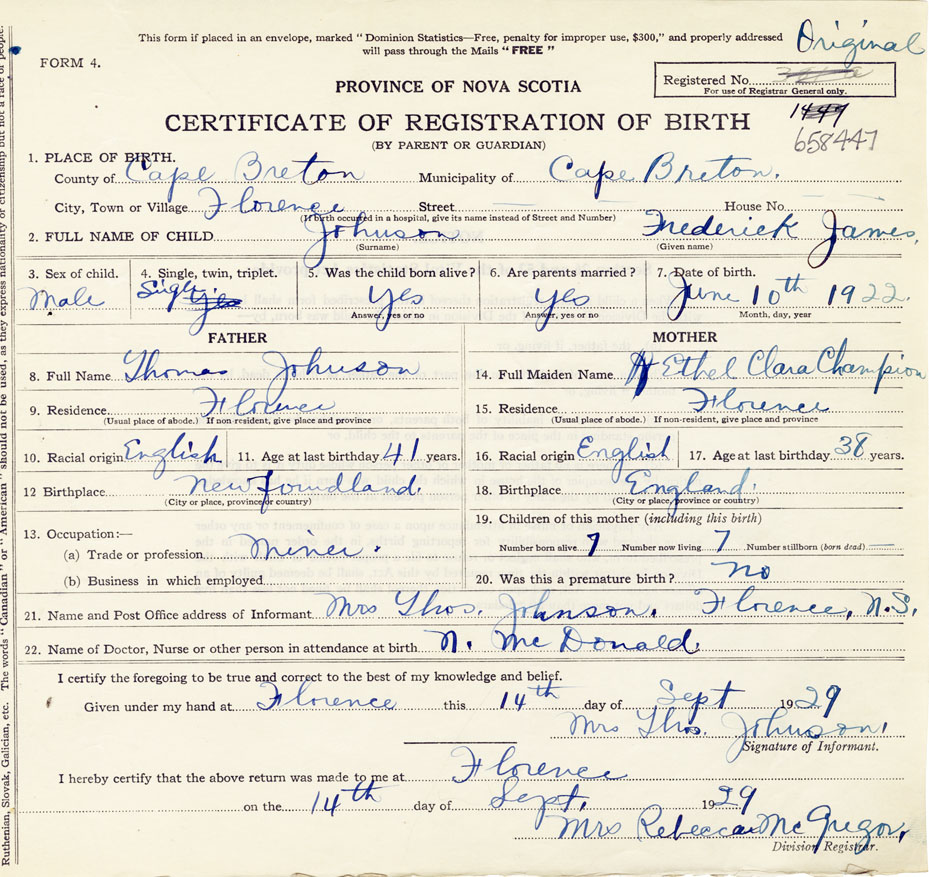 This form if placed in an envelope, marked "Dominion Statistics—Free, penalty for improper use, $300," and properly addressed
will pass through the Mails "FREE"
Original
FORM 4.
PROVINCE OF NOVA SCOTIA
Registered No.
For use of Registrar General only.
CERTIFICATE OF REGISTRATION OF BIRTH
1447
658447
(BY PARENT OR GUARDIAN)
1. PLACE OF BIRTH.
County of Cape Breton Municipality of Cape Breton.
City, Town or Village Florence Street — House No. —
(If birth occurred in a hospital, give its name instead of Street and Number)
2. FULL NAME OF CHILD Johnson Frederick James,
(Surname) (Given name)
3. Sex of child. 4. Single, twin, triplet. 5. Was the child born alive? 6. Are parents married? 7. Date of birth.
Male Single. Yes Yes Yes June 10th 1922.
Answer, yes or no Answer, yes or no Month, day, year
FATHER MOTHER
8. Full Name Thomas Johnson 14. Full Maiden Name Ethel Clara Champion
9. Residence Florence 15. Residence Florence
(Usual place of abode.) If non-resident, give place and province (Usual place of abode.) If non-resident, give place and province
10. Racial origin English 11. Age at last birthday 41 years. 16. Racial origin English 17. Age at last birthday 38 years.
12 Birthplace Newfoundland. 18. Birthplace England.
(City or place, province or country) (City or place, province or country)
13. Occupation:— 19. Children of this mother (including this birth)
(a) Trade or profession Miner. Number born alive 7 Number now living 7 Number stillborn (born dead) —
(b) Business in which employed 20. Was this a premature birth? No
21. Name and Post Office address of Informant Mrs Thos. Johnson, Florence, N.S.
22. Name of Doctor, Nurse or other person in attendance at birth N. McDonald.
I certify the foregoing to be true and correct to the best of my knowledge and belief.
Given under my hand at Florence this 14th day of Sept 1929
Mrs Thos. Johnson.
Signature of Informant.
I hereby certify that the above return was made to me at Florence
on the 14th day of Sept. 1929
Mrs Rebecca McGregor.
Division Registrar.
Ruthenian, Slovak, Galician, etc. The words "Canadian" or "American" should not be used, as they express nationality or citizenship but not a race of people.